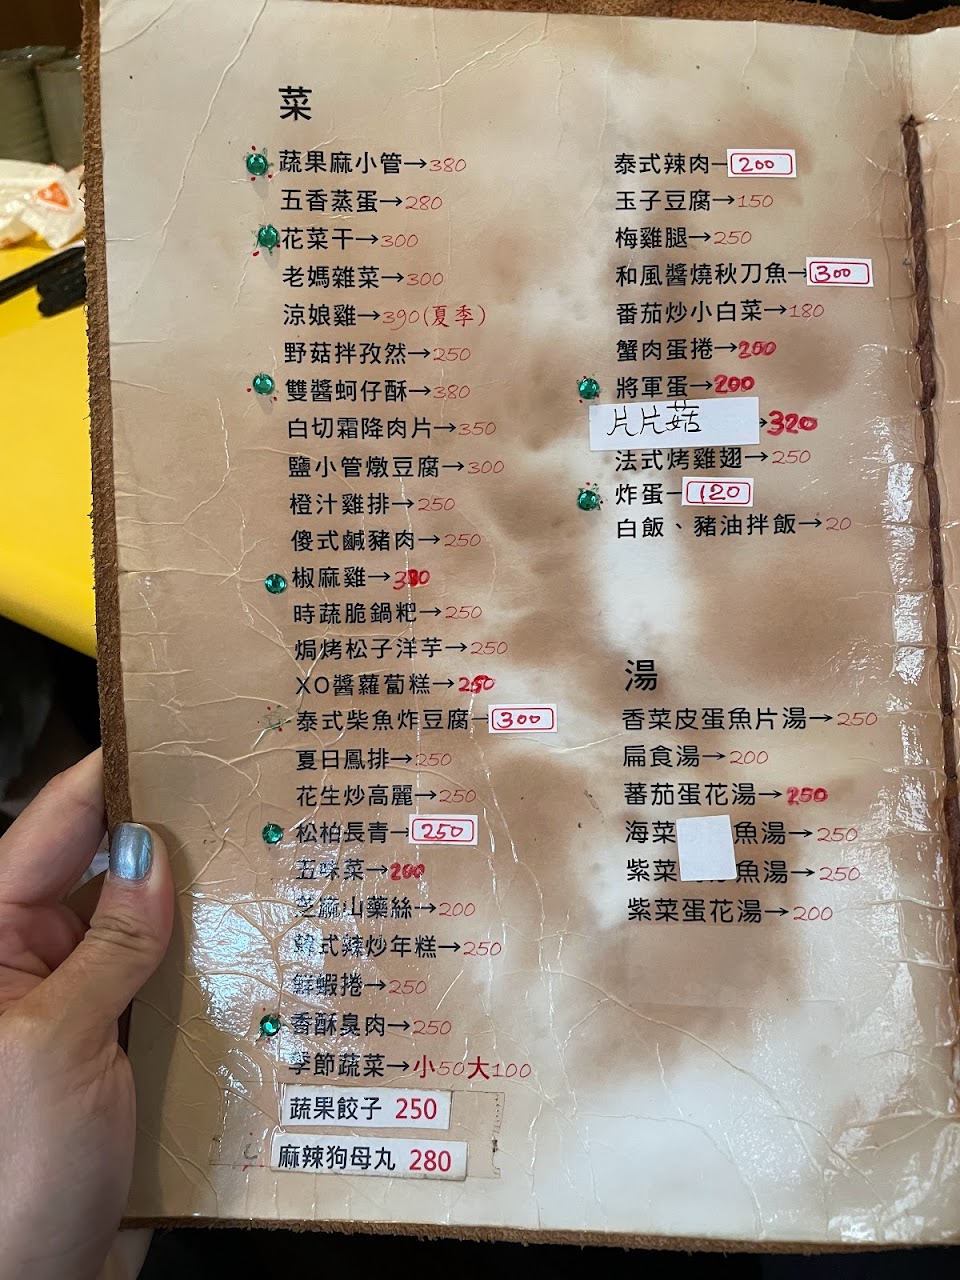 菜
蔬果麻小管→380
五香蒸蛋→280
花菜干→300
老媽雜菜→300
涼娘雞→390(夏季)
野菇拌孜然→250
雙醬蚵仔酥→380
白切霜降肉片→350
鹽小管燉豆腐→300
橙汁雞排→250
傻式鹹豬肉→250
椒麻雞→
時蔬脆鍋粑→250
焗烤松子洋芋→250
XO醬蘿蔔糕→250
泰式柴魚炸豆腐→300
夏日鳳排→250
花生炒高麗→250
松柏長青→250
五味菜→200
芝麻山藥絲→200
韓式辣炒年糕→250
鮮蝦捲→250
香酥臭肉→250
季節蔬菜→小50大100
蔬果餃子 250
麻辣狗母丸 280
泰式辣肉→200
玉子豆腐→150
梅雞腿→250
和風醬燒秋刀魚→300
番茄炒小白菜→180
蟹肉蛋捲→200
將軍蛋→200
片片菇→320
法式烤雞翅→250
炸蛋→120
白飯、豬油拌飯→20
湯
香菜皮蛋魚片湯→250
扁食湯→200
蕃茄蛋花湯→250
海菜 魚湯→250
紫菜 魚湯→250
紫菜蛋花湯→200